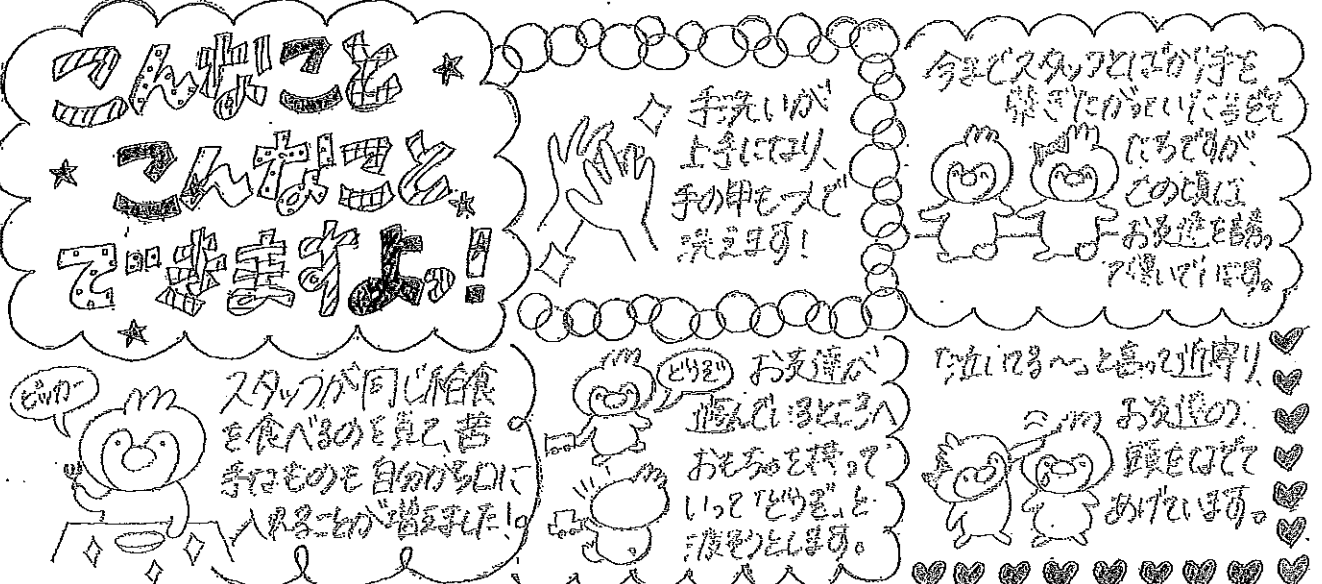 こんなこと
こんなこと
できますよっ!
手洗いが
上手になり、
手の甲も一人で
洗えます!
今までスタッフとばかり手を
繋ぎたがっていた
たちですが、
この頃は
お友達を誘っ
て繋いでいます。
ピッカー
スタッフが同じ給食
を食べるのを見て、苦
手なものも自分から口に
入れることが増えました!
どうぞ
お友達が
遊んでいるところへ
おもちゃを持って
いって「どうぞ」と
渡そうとします。
「泣いてる〜」と言って近寄り、
お友達の
頭をなでて
あげています。